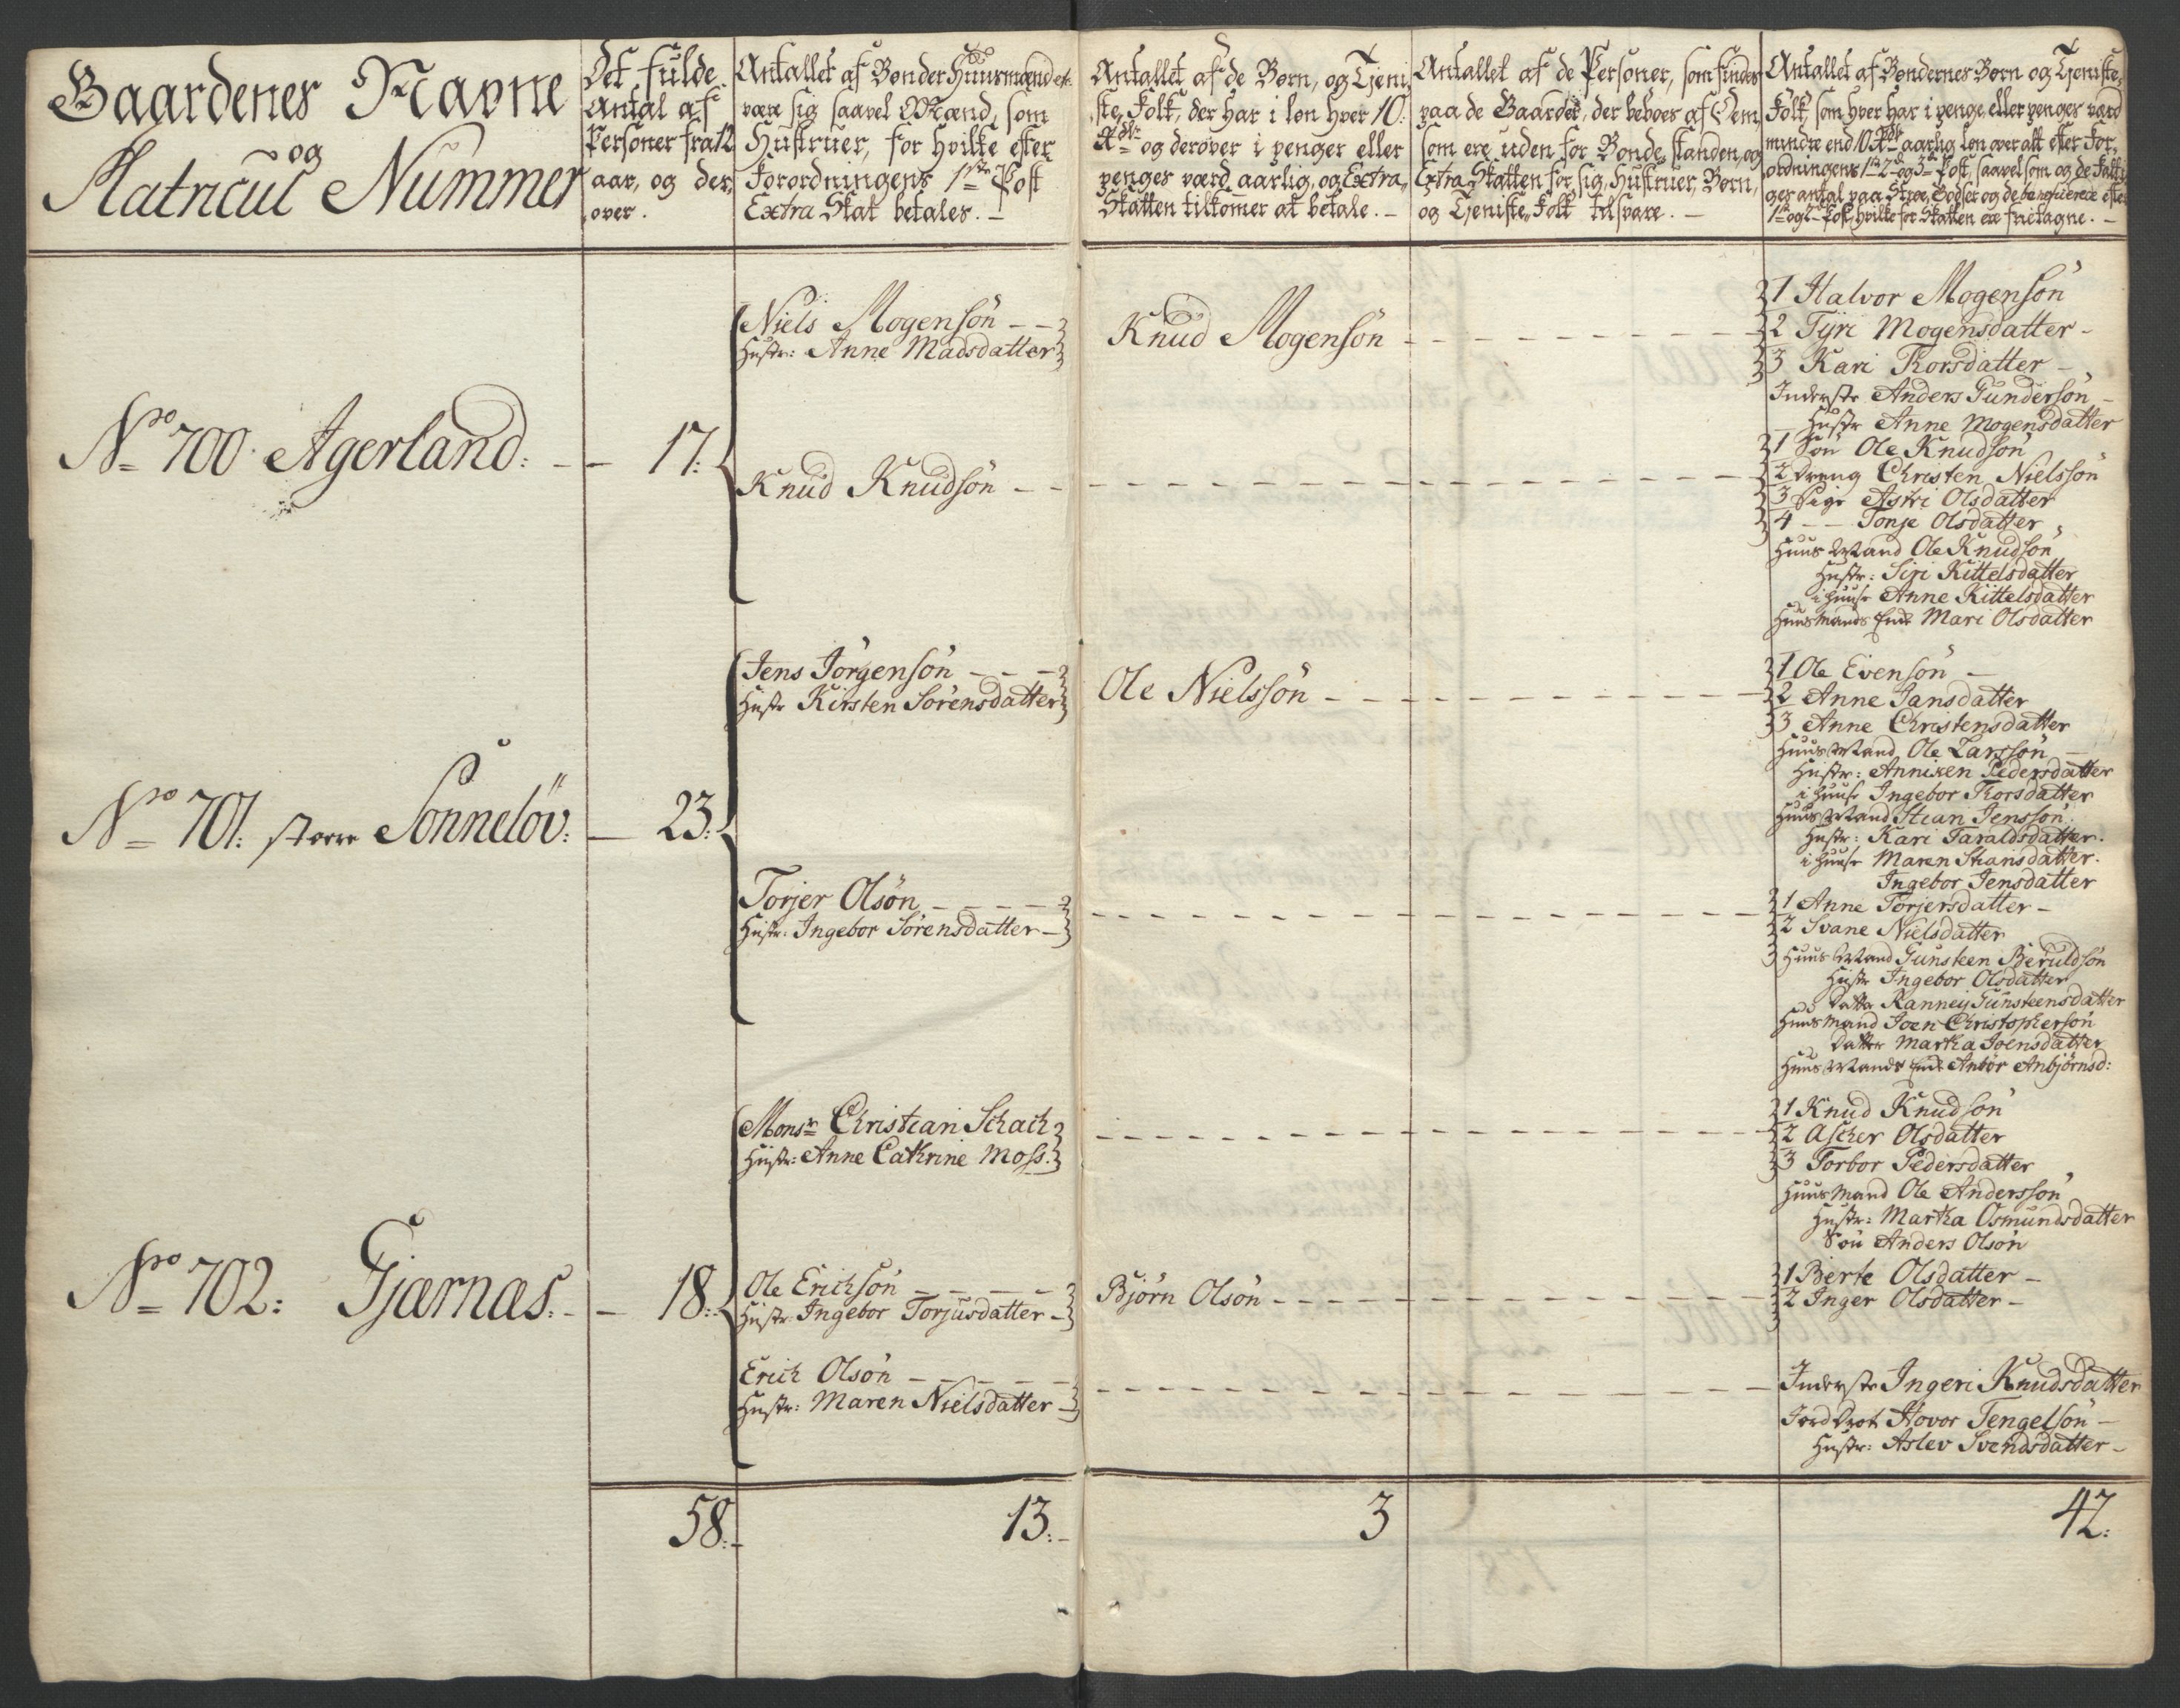 Gaardenes Navne
og
Matricul Nummer
Det fulde
Antal af
Personer fra 12
aar, og der,
over.
Antallet af Bønder Huusmænd etc.
være sig saavel Mænd, som
Hustruer, for hvilke efter
Forordningens 1ste Post
Extra Skat betales. -
Antallet af de Børn, og Tieni,
ste, Folk, der har i løn hver 10:
Rdlr og derover i penger eller
penges værd aarlig, og Extra,
Skatten tilkomer at betale. -
Antallet af de Personer, som findes
paa de Gaarder, der beboes af Dem,
som ere uden for Bonde, standen, og
Extra Skatten for sig, Hustruer, Børn,
og Tieniste, Folk tilsvare. -
Antallet af Bøndernes Børn og Tieniste,
Folk, som hver har i penge eller penges værd
mindre end 10 Rdlr aarlig løn over alt efter For,
ordningens 1ste 2den og 3die Post, saavelsom og de Fatti,
ges antal paa Strøe, Godser og de efter
1ste og 2den Post, hvilke for Skatten ere frietagne. -
No 700. Agerland: - - 17:
Niels Mogensøn - -
Hustr: Anne Madsdatter
Knud Mogensøn - - -
1 Halvor Mogensøn
2 Tyri Mogensdatter -
3 Kari Thorsdatter -
Inderste Anders Gundersøn -
Hustr Anne Mogensdatter
Knud Knudsøn - -
1 Søn Ole Knudsøn
2 Dreng Christen Nielssøn
3 Pige Astri Olsdatter
4 - - Tonje Olsdatter
Huus Mand Ole Knudsøn
Hustr: Siri Kittelsdatter
i Huuse Anne Kittelsdatter
Huusmands Enke Mari Olsdatter
No 701: Større Sønneløv: - 23:
Jens Jørgensøn - - -
Hustr Kirsten Sørensdatter
Ole Nielssøn - - -
1 Ole Evensøn -
2 Anne Jansdatter
3 Anne Christensdatter
Huus Mand Ole Larssøn -
Hustr: Anniken Pedersdatter
i Huuse Ingebor Thorsdatter
Huus Mand Stian Jenssøn.
Hustr: Kari Taraldsdatter.
i Huuse Maren Stiansdatter.
Ingebor Jensdatter
Torjer Olsøn - - - -
Hustr: Ingebor Sørensdatter -
1 Anne Torjersdatter -
2 Svane Nielsdatter
Huus Mand Gunsteen Beruldsøn
Hustr Ingebor Olsdatter
Datter Ranneij Gunsteensdatter
Huusmand Joen Christophersøn
Datter Martha Joensdatter
Huus Mands Enke Anbor Anbjørnsd:
No 702: Gjærnæs: - - 18:
Monsr Christian Schach
Hustr: Anne Cathrine Moss.
1 Knud Knudsøn
2 Ascher Olsdatter
3 Torbor Pedersdatter
Huusmand Ole Anderssøn
Hustr: Martha Osmundsdatter
Søn Anders Olsøn
Ole Erichsøn - - - -
Hustr Ingebor Torjusdatter -
Bjørn Olsøn - - -
1 Berte Olsdatter -
2 Inger Olsdatter -
Erich Olsøn - - - - -
Hustr: Maren Nielsdatter -
Inderste Ingeri Knudsdatter
Jord Drot Hovor Tengelsøn -
Hustr: Aslev Svendsdatter -
58:- 13:- 3 42: